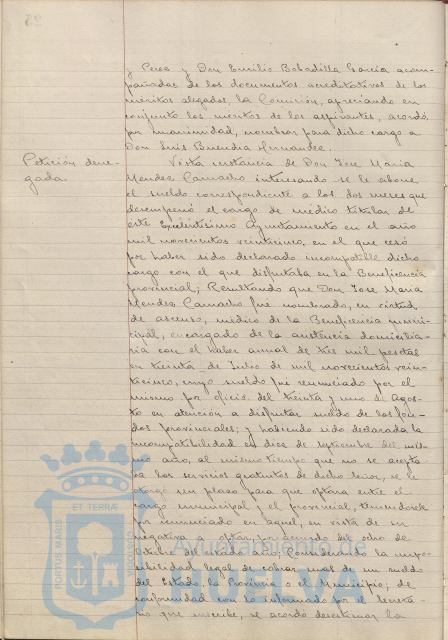 y Perea y Don Emilio Bobadilla García acom-
pañadas de los documentos acreditativos de los
méritos alegados, la Comisión, apreciando en
conjunto los méritos de los aspirantes, acordó,
por unanimidad, nombrar para dicho cargo a
Don Luis Buendia Hernandez.
Petición dene-
gada.
Vista instancia de Don Jose Maria
Mendez Camacho interesando se le abone
el sueldo correspondiente a los dos meses que
desempeñó el cargo de médico titular de
este Excelentisimo Ayuntamiento en el año
mil novecientos veinticinco, en el que cesó
por haber sido declarado incompatible dicho
cargo con el que disfrutaba en la Beneficencia
provincial; Resultando que Don Jose Maria
Mendez Camacho fué nombrado, en virtud
de ascenso, médico de la Beneficencia muni-
cipal, encargado de la asistencia domicilia-
ria con el haber anual de tres mil pesetas
en treinta de Julio de mil novecientos vein-
ticinco, cuyo sueldo fué renunciado por el
mismo por oficio del treinta y uno de Agos-
to en atención a disfrutar sueldo de los fon-
dos provinciales; y habiendo sido declarada la
incompatibilidad en doce de septiembre del mis-
mo año, al mismo tiempo que no se acepta-
ba los servicios gratuitos de dicho señor, se le
otorgó un plazo para que optara entre el
cargo municipal y el provincial, teniendosele
por renunciado en aquel, en vista de su
negativa a optar, por acuerdo del ocho de
Octubre del citado año; Considerando la impo-
sibilidad legal de cobrar mas de un sueldo
del Estado, la Provincia o el Municipio; de
conformidad con lo informado por el Secreta-
rio que suscribe, se acordó desestimar la
PORTUS MARIS
ET TERRAE
Ayuntamiento de
HUELVA